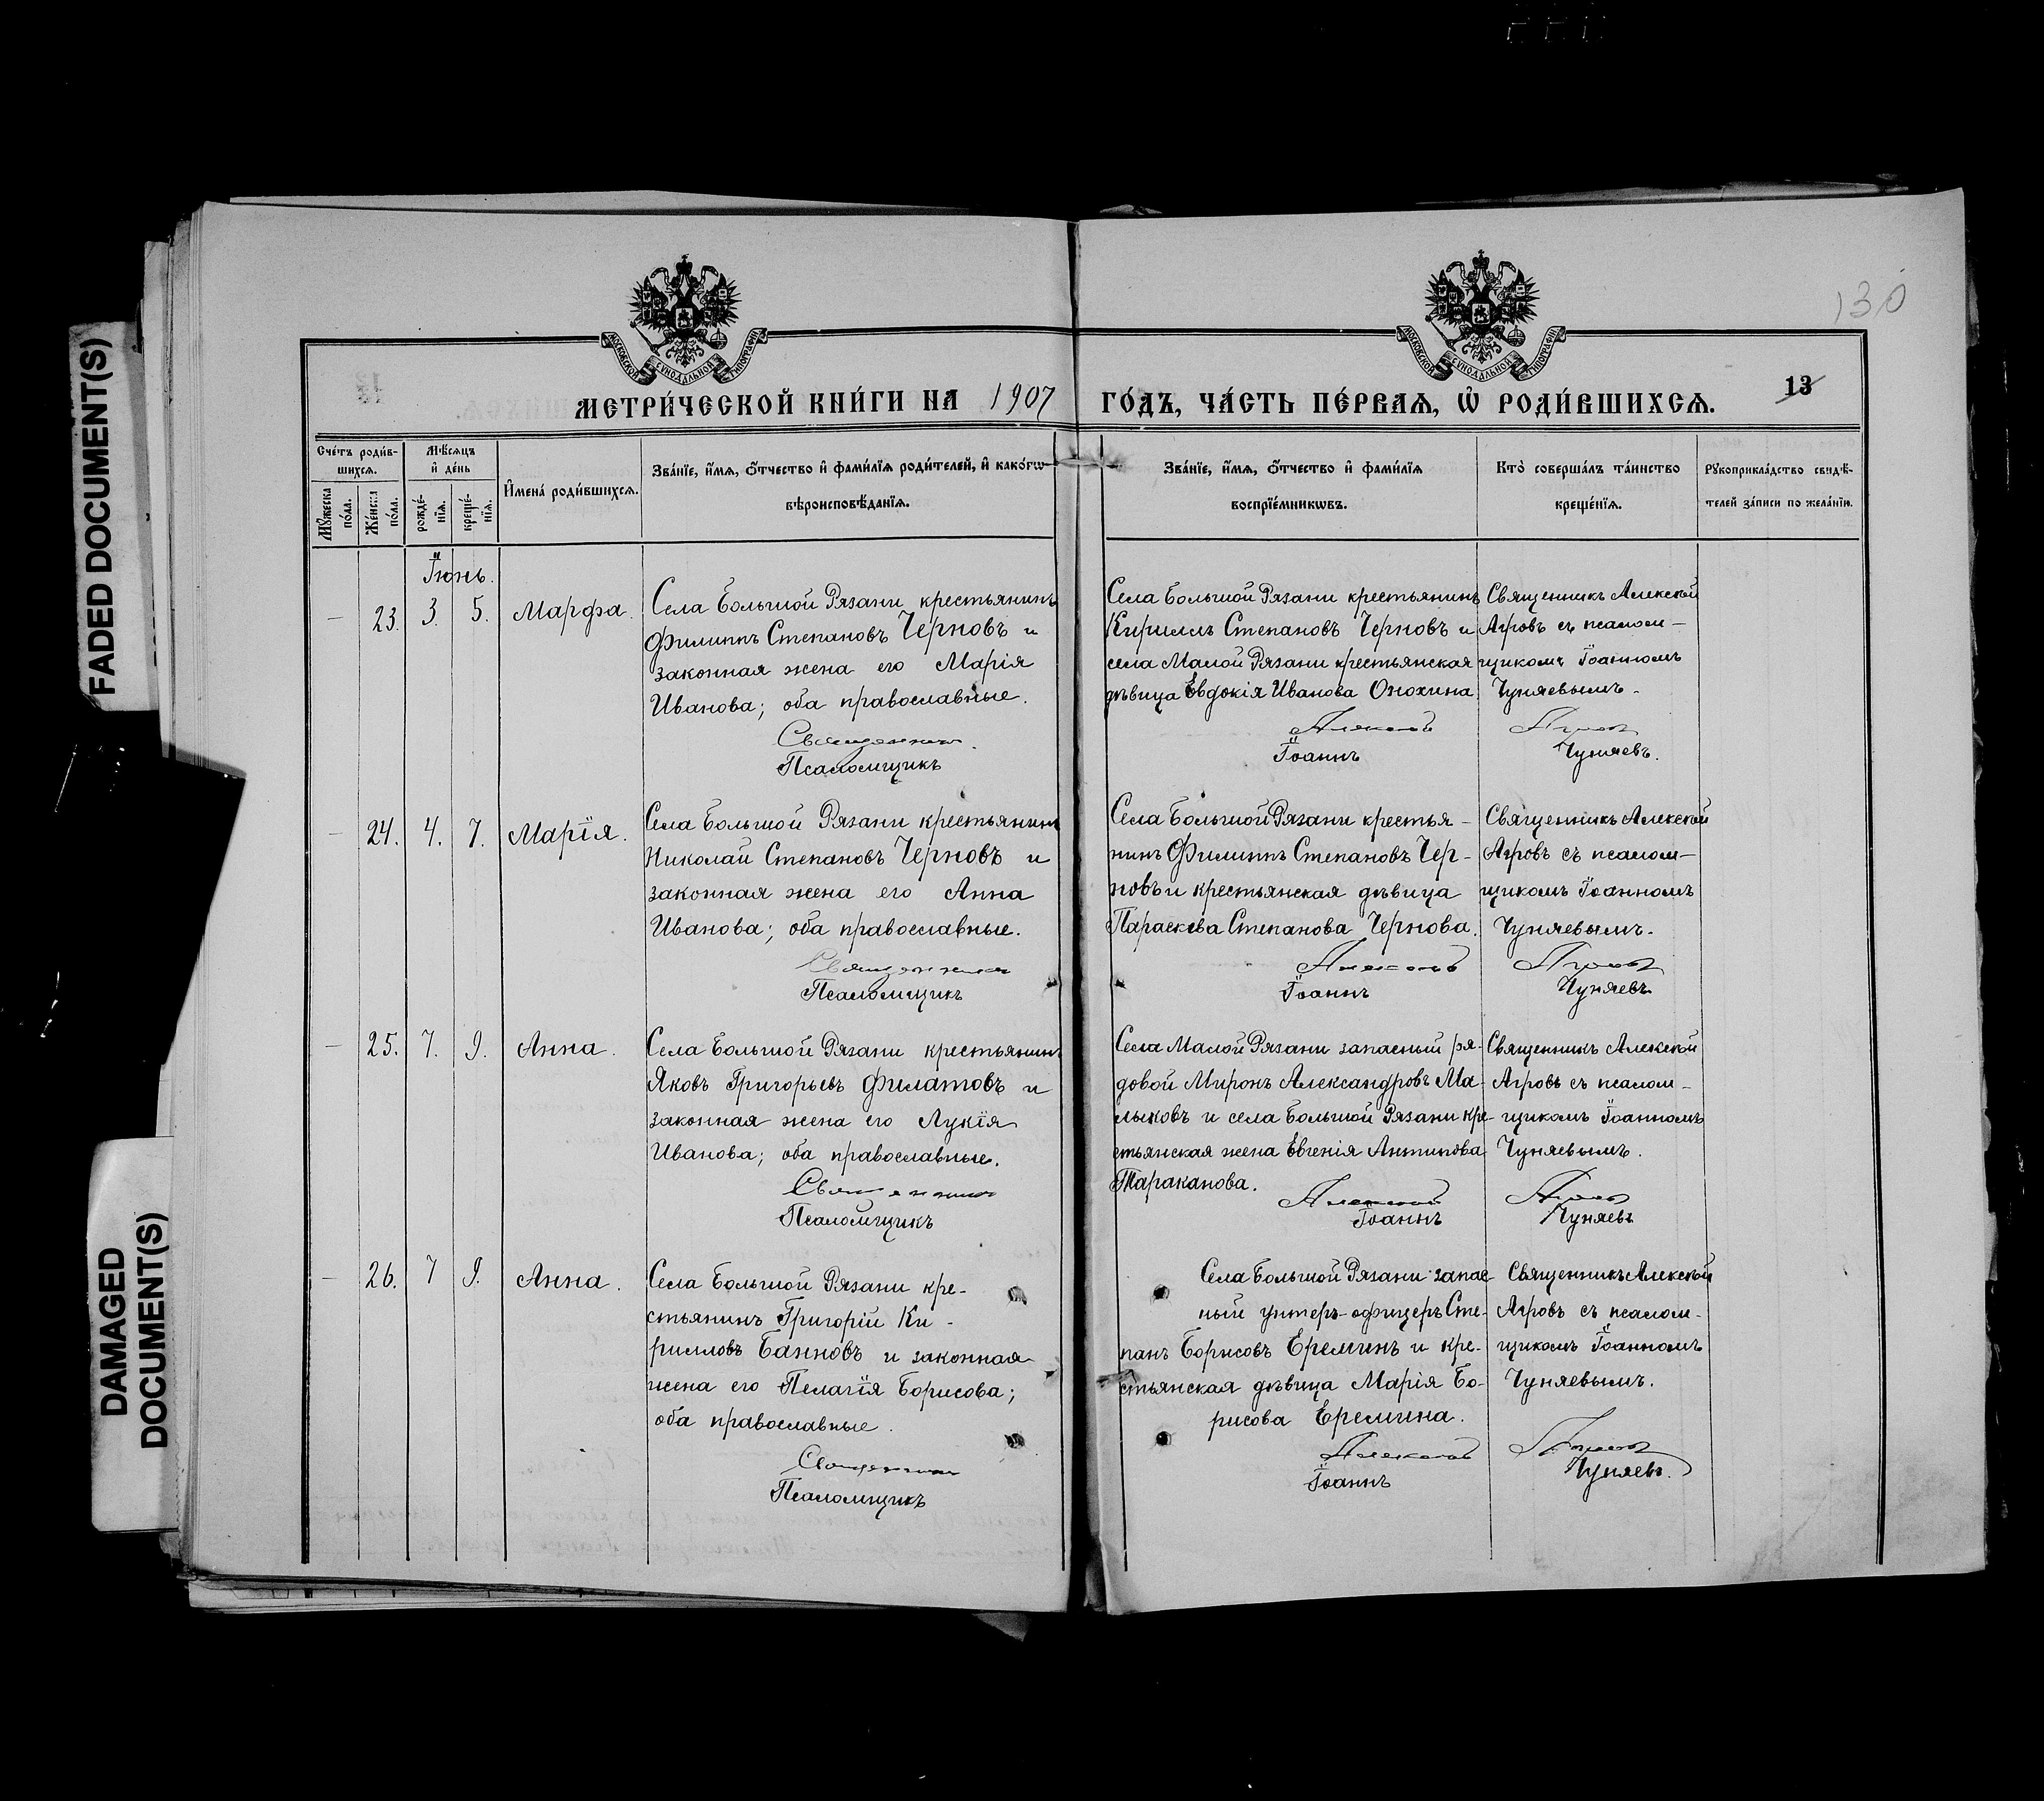 FADED DOCUMENT(S)
DAMAGED
DOCUMENT(S)
130
МОСКОВСКОЙ СѴНОДАЛЬНОЙ ТИПОГРАФІИ
МОСКОВСКОЙ СѴНОДАЛЬНОЙ ТИПОГРАФІИ
МЕТРИ́ЧЕСКОЙ КНИ́ГИ НА 1907
ГО́ДЪ, ЧА́СТЬ ПЕ́РВАѦ, Ѡ҆ РОДИ́ВШИХСѦ.
13
Сче́тъ роди́в-
шихсѧ.
Мꙋ́жеска
по́ла.
Же́нска
по́ла.
Мѣ́сѧцъ
и҆ де́нь
рожде́-
нїѧ.
креще́-
нїѧ.
И҆мена̀ роди́вшихсѧ.
Зва́нїе, и҆́мѧ, ѻ҆́тчество и҆ фами́лїѧ роди́телей, и҆ како́гѡ
вѣроисповѣ́данїѧ.
Зва́нїе, и҆́мѧ, ѻ҆́тчество и҆ фами́лїѧ
воспрїе́мникѡвъ.
Кто̀ соверша́лъ та́инство
креще́нїѧ.
Рꙋкоприкла́дство свидѣ́-
телей за́писи по жела́нїю.
Іюнь.
— 23. 3. 5. Марфа.
Села Большой Рязани крестьянинъ
Филиппъ Степановъ Черновъ и
законная жена его Марія
Иванова; оба православные.
Священникъ
Псаломщикъ
Села Большой Рязани крестьянинъ
Кириллъ Степановъ Черновъ и
села Малой Рязани крестьянская
дѣвица Евдокія Иванова Онохина
Алексей
Іоаннъ
Священникъ Алексей
Агровъ съ псалом-
щикомъ Іоанномъ
Чуняевымъ.
Агровъ
Чуняевъ.
— 24. 4. 7. Марія.
Села Большой Рязани крестьянинъ
Николай Степановъ Черновъ и
законная жена его Анна
Иванова; оба православные.
Священникъ
Псаломщикъ
Села Большой Рязани крестья-
нинъ Филиппъ Степановъ Чер-
новъ и крестьянская дѣвица
Параскева Степанова Чернова.
Алексей
Іоаннъ
Священникъ Алексей
Агровъ съ псалом-
щикомъ Іоанномъ
Чуняевымъ.
Агровъ
Чуняевъ
— 25. 7. 9. Анна.
Села Большой Рязани крестьянинъ
Яковъ Григорьевъ Филатовъ и
законная жена его Лукія
Иванова; оба православные.
Священникъ
Псаломщикъ
Села Малой Рязани запасный ря-
довой Миронъ Александровъ Ма-
лыковъ и села Большой Рязани кре-
стьянская жена Евгенія Антипова
Тараканова.
Алексей
Іоаннъ
Священникъ Алексей
Агровъ съ псалом-
щикомъ Іоанномъ
Чуняевымъ.
Агровъ
Чуняевъ
— 26. 7 9. Анна.
Села Большой Рязани кре-
стьянинъ Григорій Ки-
рилловъ Банновъ и законная
жена его Пелагія Борисова;
оба православные.
Священникъ
Псаломщикъ
Села Большой Рязани запас-
ный унтеръ-офицеръ Сте-
панъ Борисовъ Ереминъ и кре-
стьянская дѣвица Марія Бо-
рисова Еремина.
Алексей
Іоаннъ
Священникъ Алексей
Агровъ съ псалом-
щикомъ Іоанномъ
Чуняевымъ.
Агровъ
Чуняевъ.